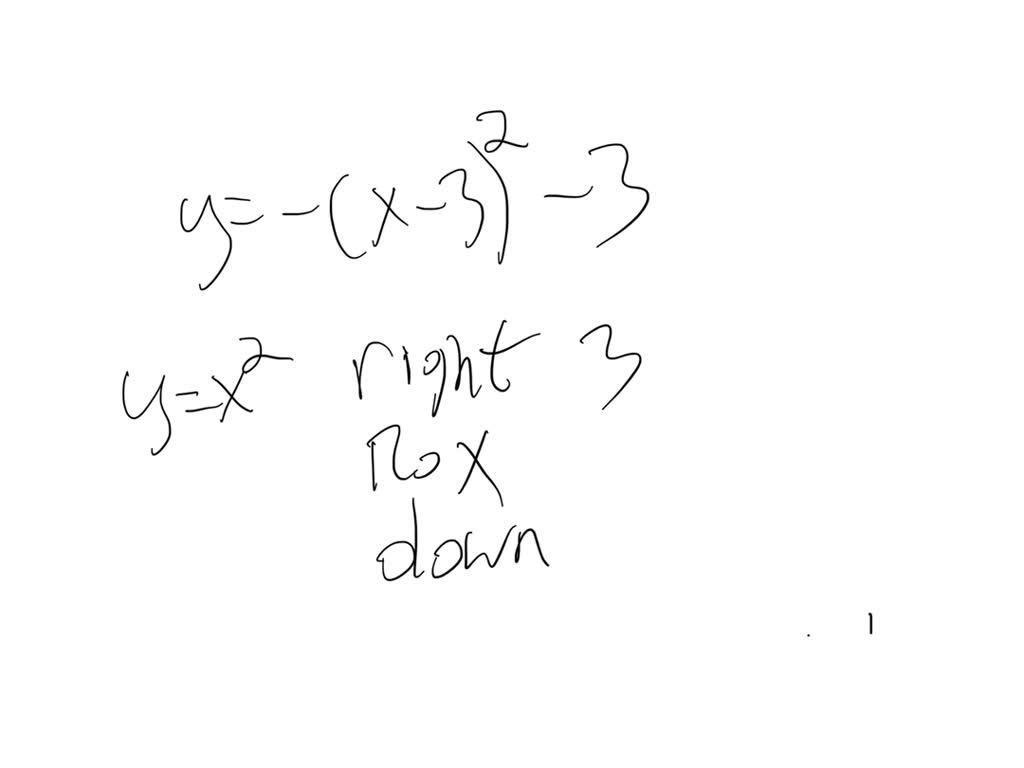 y=-(x-3)²-3
y=x² right 3
Ro x
down
. 1